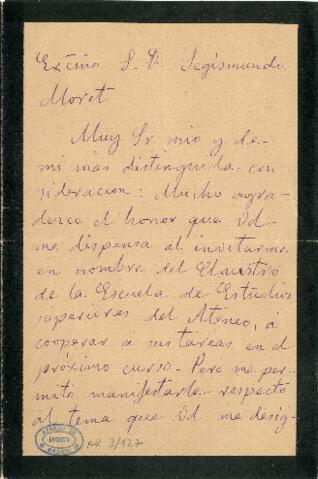 Excmo S. D. Segismundo
Moret
Muy Sr mio y de
mi mas distinguida con
sideracion: Mucho agra-
dezco el honor que Vd
me dispensa al invitarme
en nombre del Claustro
de la Escuela de Estudios
superiores del Ateneo, á
cooperar a sus tareas en el
próximo curso. Pero me per-
mito manifestarle respecto
al tema que Vd me desig-
ATENEO DE
MADRID
AR 3/127